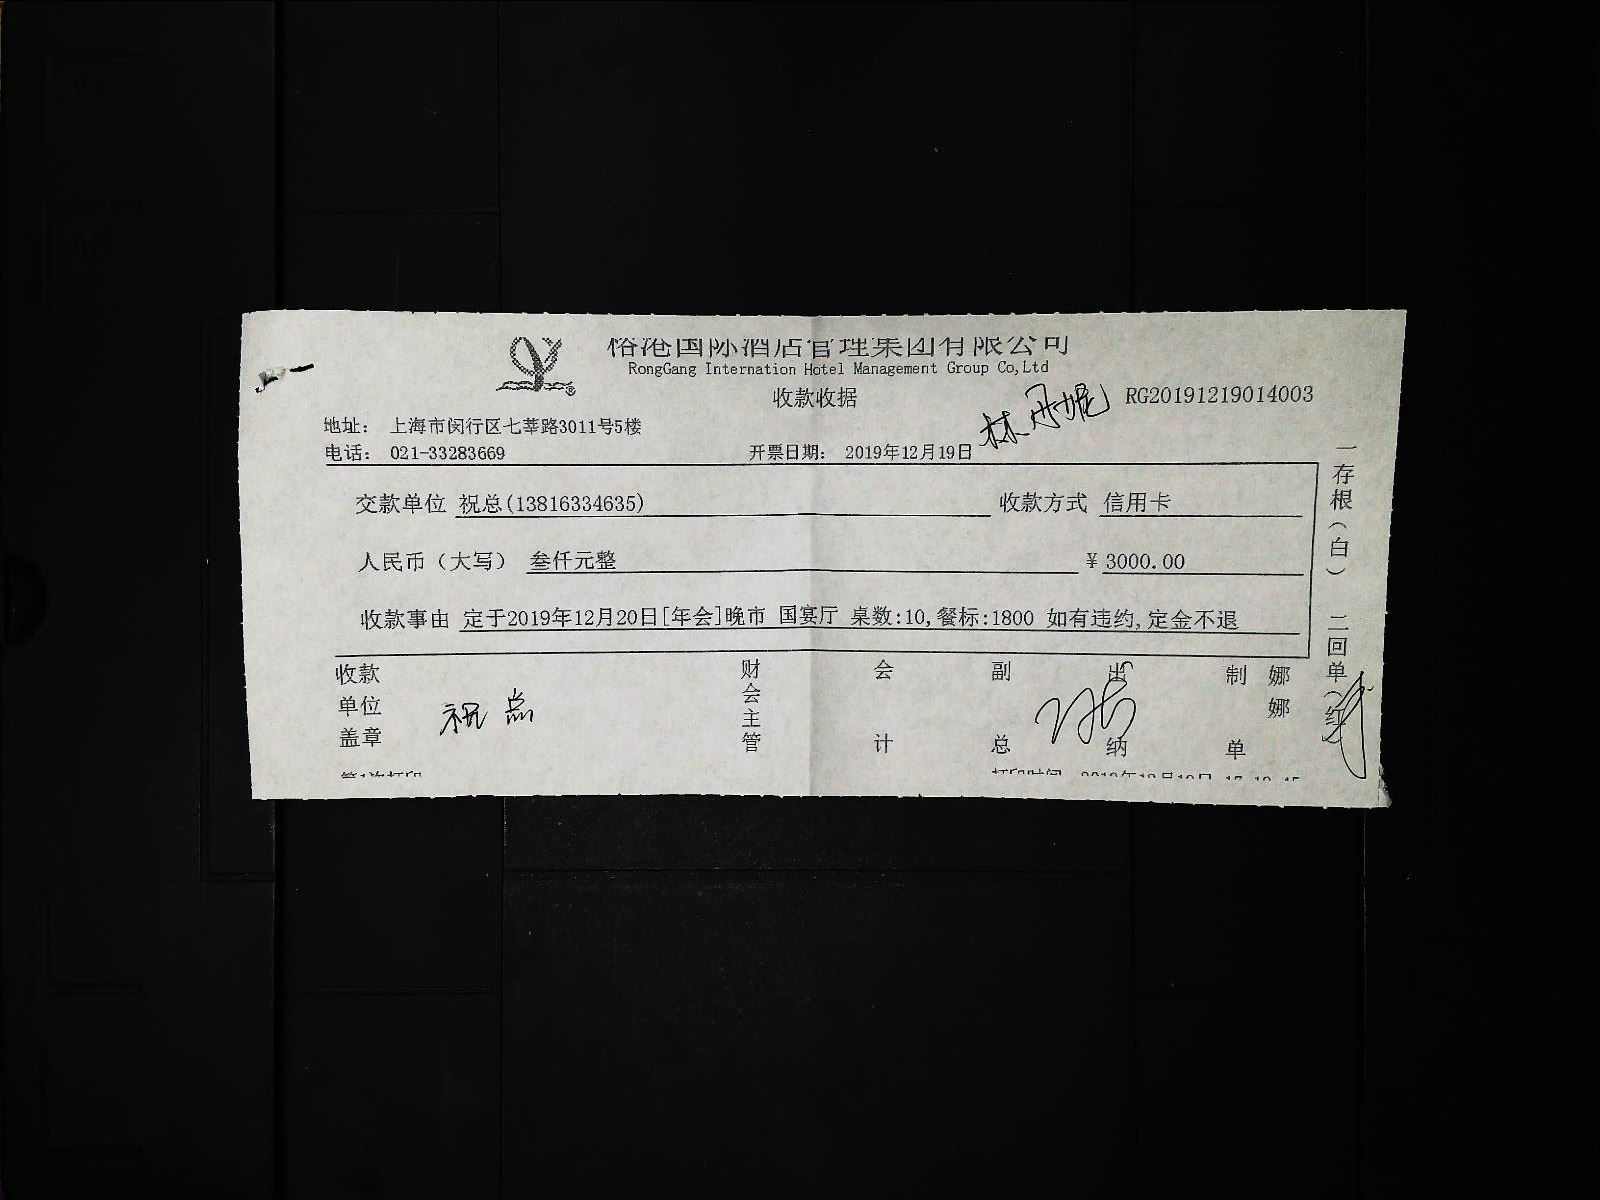 榕港国际酒店管理集团有限公司
RongGang Internation Hotel Management Group Co,Ltd
收款收据
RG20191219014003
林丹妮
地址： 上海市闵行区七莘路3011号5楼
电话： 021-33283669
开票日期： 2019年12月19日
交款单位 祝总(13816334635) 收款方式 信用卡
人民币（大写） 叁仟元整 ¥ 3000.00
收款事由 定于2019年12月20日[年会]晚市 国宴厅 桌数:10,餐标:1800 如有违约,定金不退
收款单位盖章
祝总
财会主管
会计
副总
出纳
制单
娜娜
一存根（白） 二回单（红）
第1次打印
打印时间